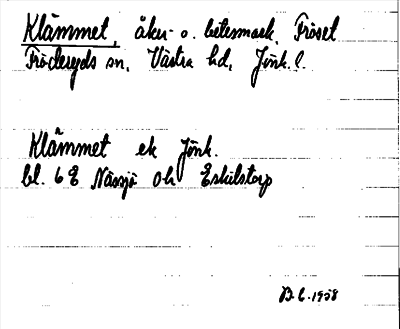 Klämmet, åker o. betesmark, Fröset
Fröderyds sn, Västra hd, Jönk. l.
Klämmet ek Jönk.
bl. 6 E Nässjö Oh Eskilstorp
B. L. 1958